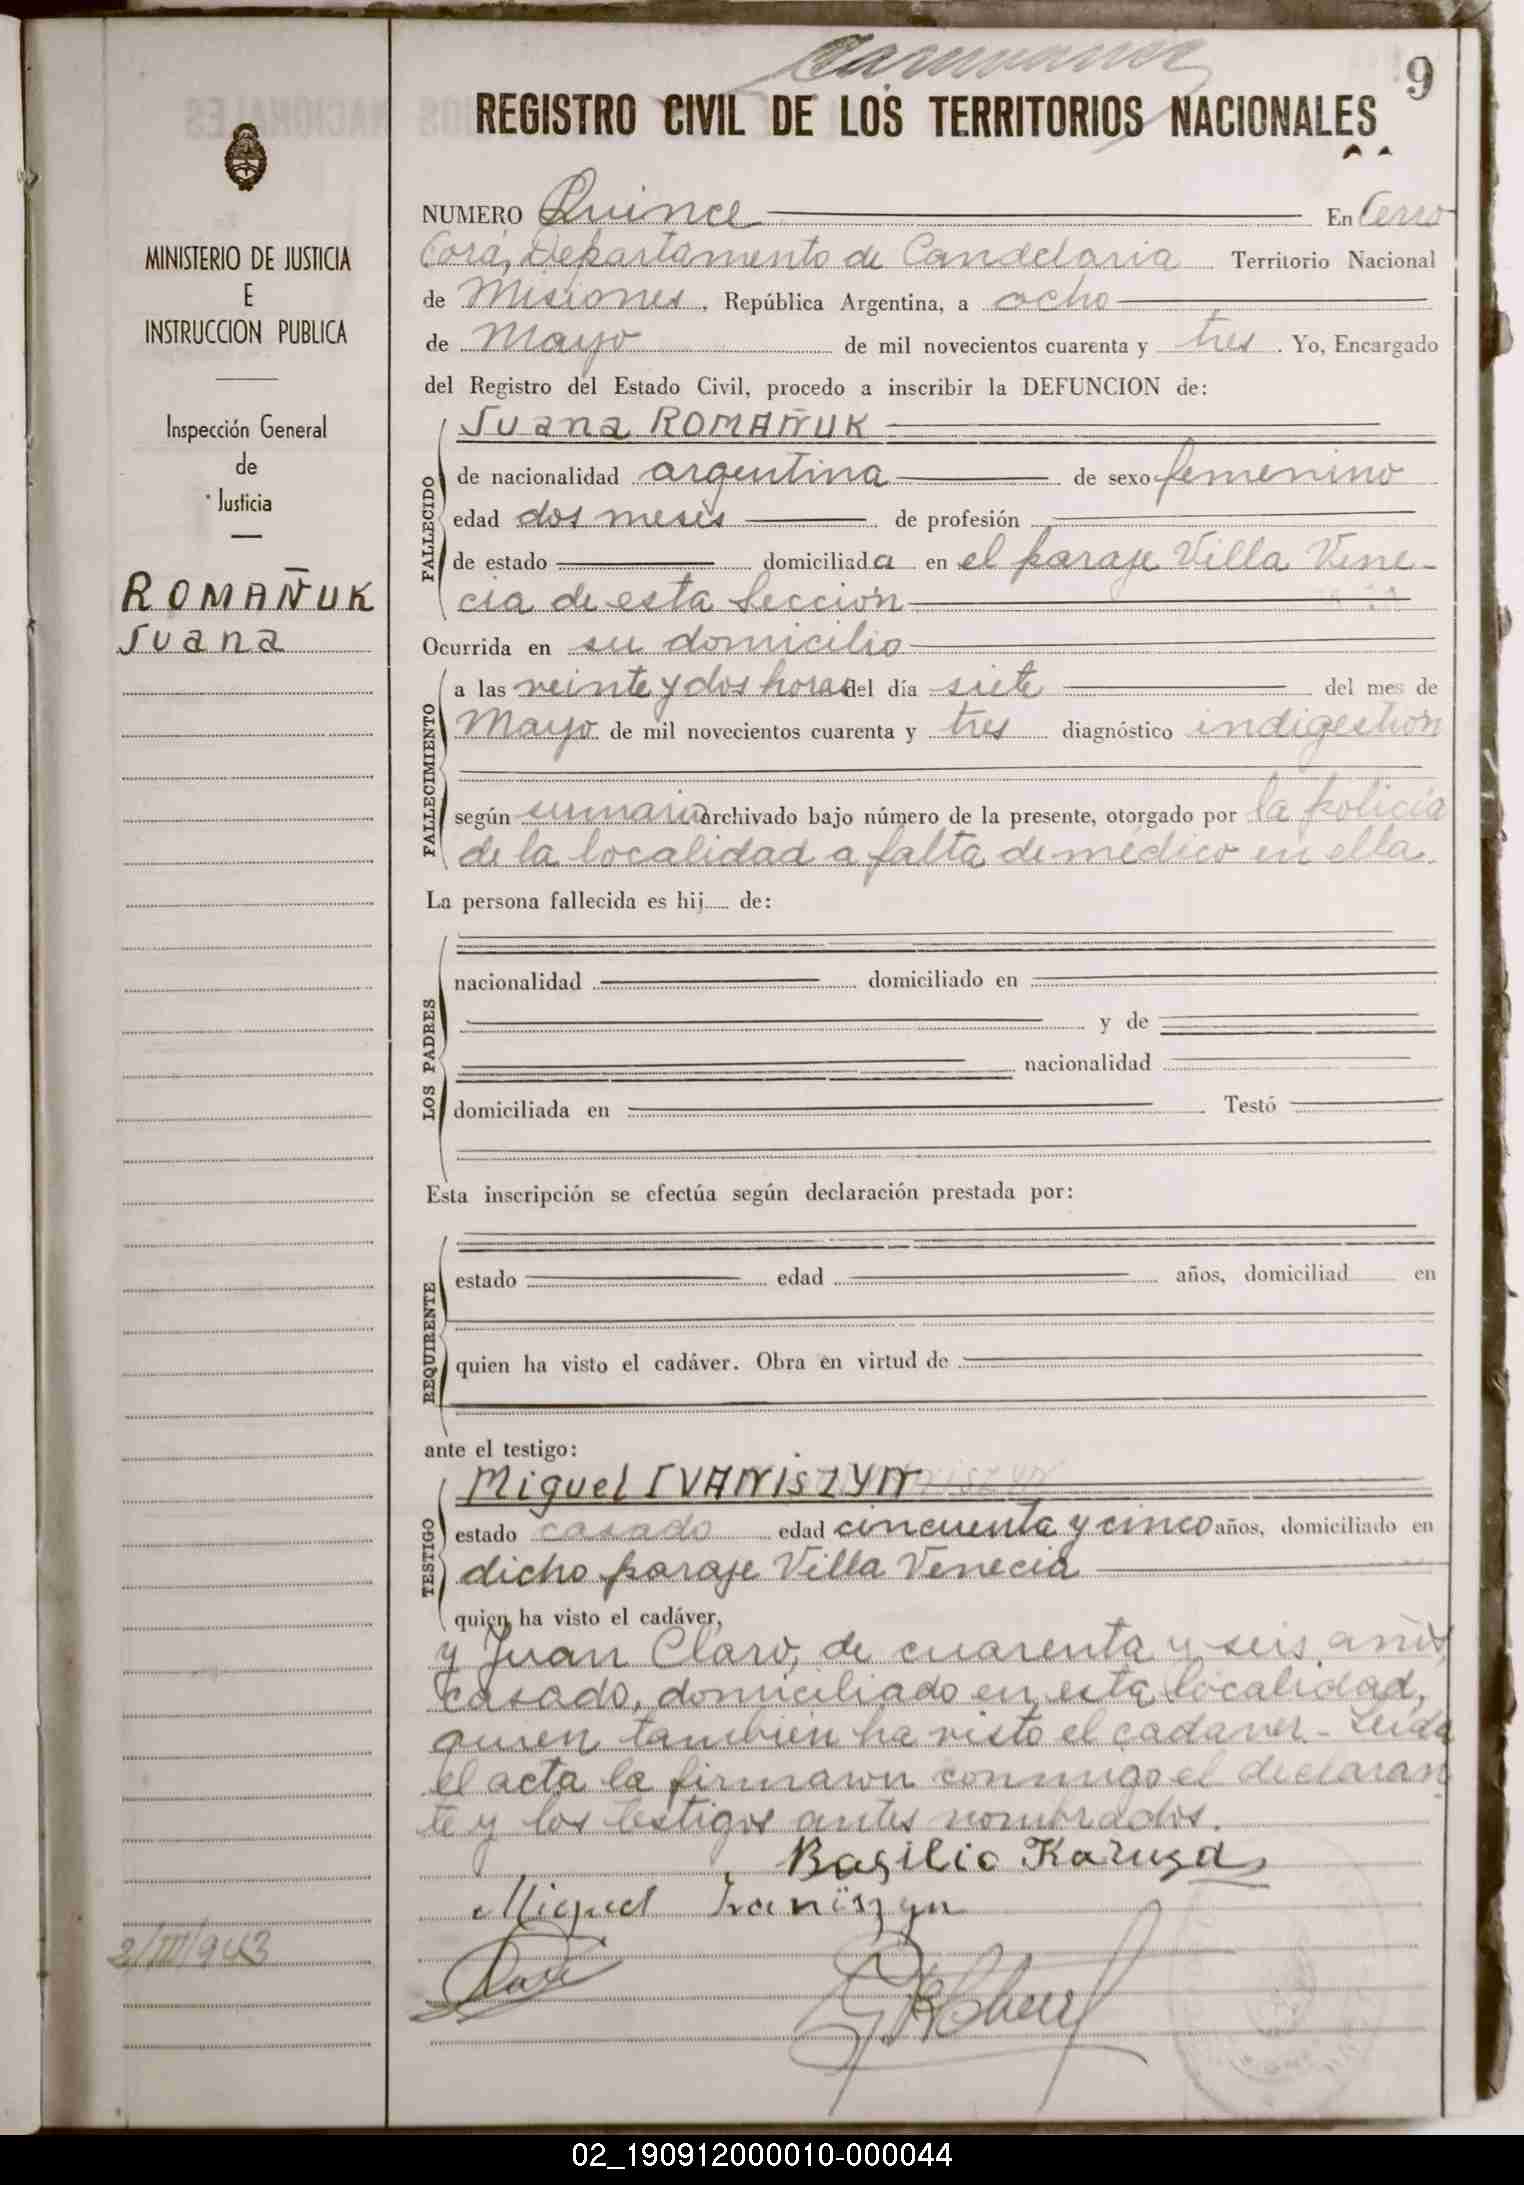 9
REGISTRO CIVIL DE LOS TERRITORIOS NACIONALES
MINISTERIO DE JUSTICIA
E
INSTRUCCION PUBLICA
Inspección General
de
Justicia
ROMAÑUK
Juana
2/III/943
NUMERO Quince En Cerro
Corá, Departamento de Candelaria Territorio Nacional
de Misiones, República Argentina, a ocho
de Mayo de mil novecientos cuarenta y tres. Yo, Encargado
del Registro del Estado Civil, procedo a inscribir la DEFUNCION de:
FALLECIDO
Juana ROMAÑUK
de nacionalidad argentina de sexo femenino
edad dos meses de profesión
de estado domiciliada en el paraje Villa Vene-
cia de esta Sección
Ocurrida en su domicilio
FALLECIMIENTO
a las veinte y dos horas del día siete del mes de
Mayo de mil novecientos cuarenta y tres diagnóstico indigestión
según sumario archivado bajo número de la presente, otorgado por la policía
de la localidad a falta de médico en ella.
La persona fallecida es hij de:
LOS PADRES
nacionalidad domiciliado en
y de
nacionalidad
domiciliada en Testó
Esta inscripción se efectúa según declaración prestada por:
REQUIRENTE
estado edad años, domiciliad en
quien ha visto el cadáver. Obra en virtud de
ante el testigo:
TESTIGO
Miguel IVANISZYN
estado casado edad cincuenta y cinco años, domiciliado en
dicho paraje Villa Venecia
quien ha visto el cadáver,
y Juan Claro, de cuarenta y seis años,
casado, domiciliado en esta localidad,
quien también ha visto el cadaver - Leida
el acta la firmaron conmigo el declaran
te y los testigos antes nombrados.
Basilio
Miguel Ivaniszyn
02_190912000010-000044